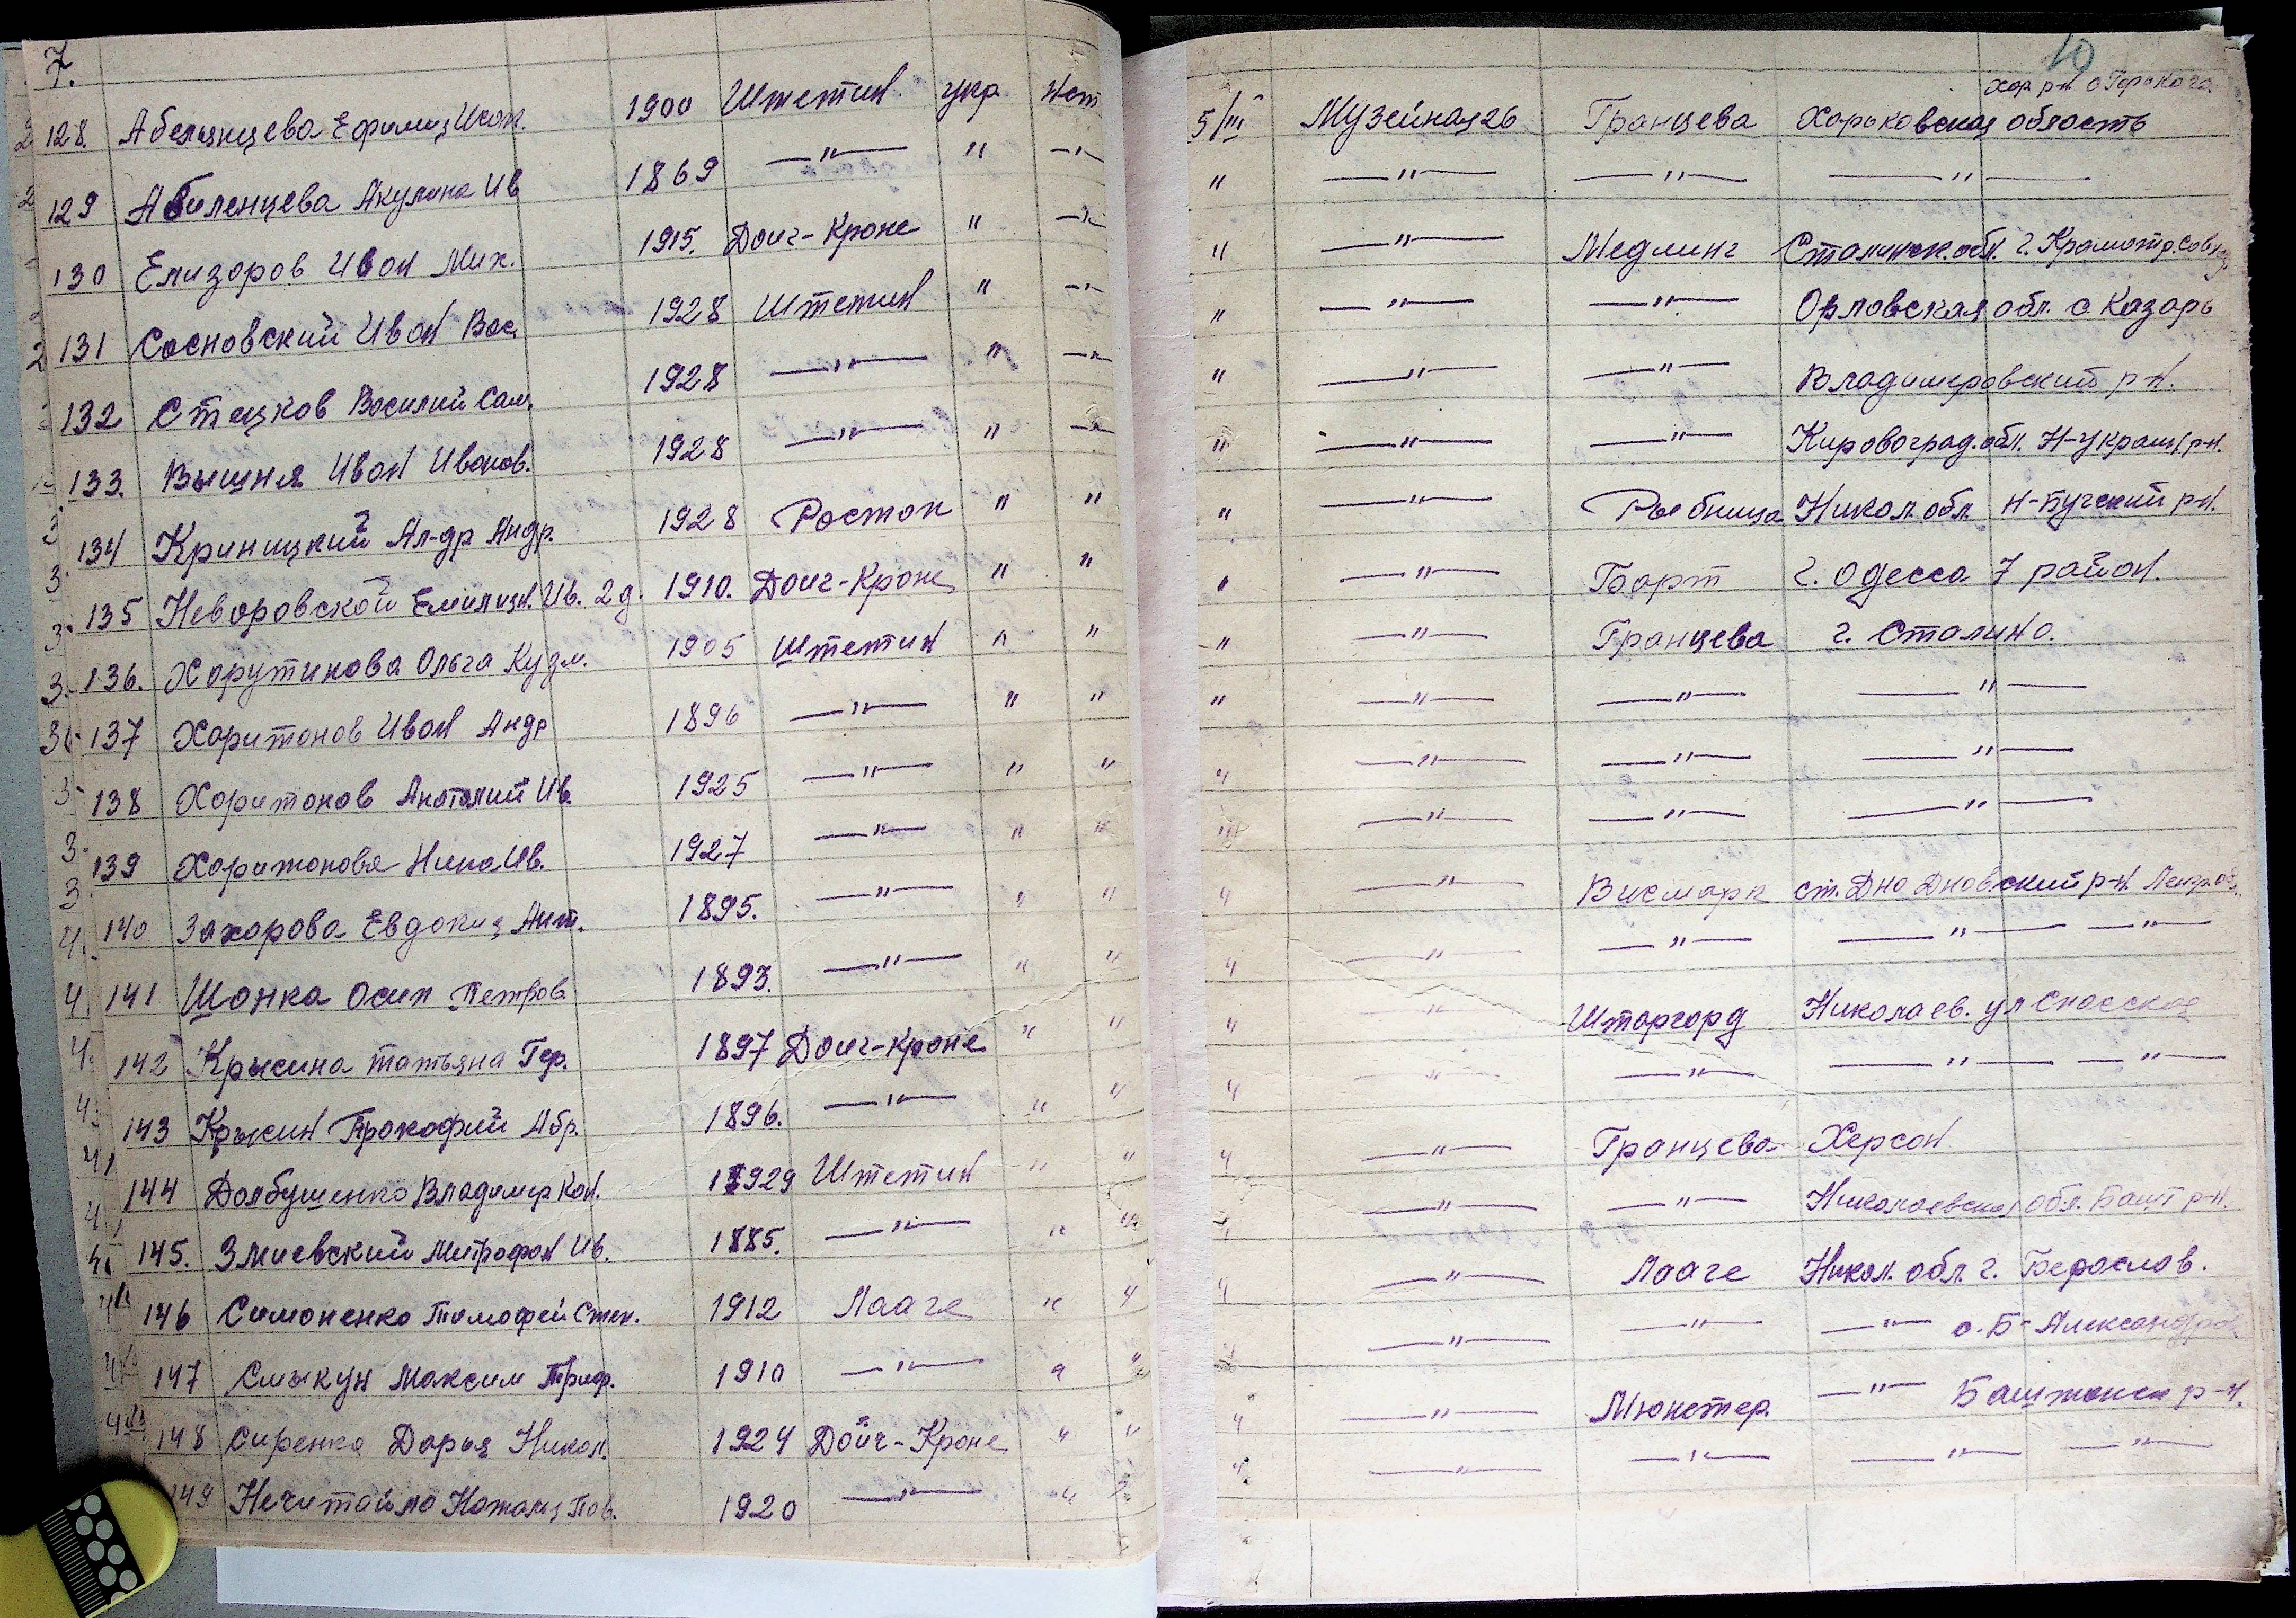 7.
128. Абелянцева Ефимия Исак. 1900 Штетин укр нет
129 Абиленцева Акулина Ив 1869 —"— " —"—
130 Елизаров Иван Мих. 1915. Дойч-Кроне " —"—
131 Сосновский Иван Вас. 1928 Штетин " —"—
132 Стецков Василий Сам. 1928 —"— " —"—
133. Вышня Иван Иванов. 1928 —"— " —"—
134 Криницкий Ал-др Андр. 1928 Росток " "
135 Неворовской Емилиян. Ив. 2д. 1910. Дойч-Кроне " "
136. Харутинова Ольга Кузм. 1905 Штетин " "
137 Харитонов Иван Андр 1896 —"— " "
138 Харитонов Анатолий Ив. 1925 —"— " "
139 Харитонова Нина Ив. 1927 —"— " "
140 Захарова Евдокия Ант. 1895. —"— " "
141 Шонка Осип Петров. 1893. —"— " "
142 Крысина Татьяна Гер. 1897 Дойч-Кроне " "
143 Крысин Прокофий Абр. 1896. —"— " "
144 Долбушенко Владимир Кон. 1929 Штетин " "
145. Змиевский Митрофан Ив. 1885. —"— " "
146 Симоненко Тимофей Степ. 1912 Лааге " "
147 Смыкун Максим Триф. 1910 —"— " "
148 Сиренка Дарья Никол. 1924 Дойч-Кроне " "
149 Нечитайло Наталия Пав. 1920 —"— " "
10
Хар р-н с Горького
5/III Музейная 26 Гранцева Харьковская область
" —"— —"— —"—
" —"— Медлинг Сталинск. обл. г. Краматор.
" —"— —"— Орловская обл. с. Казарь
" —"— —"— Владимеровский р-н.
" —"— —"— Кировоград. обл. Н-Украин. р-н.
" —"— Рыбница Никол. обл. Н-Бугский р-н.
" —"— Барт г. Одесса 7 район.
" —"— Гранцева г. Сталино.
" —"— —"— —"—
" —"— —"— —"—
" —"— —"— —"—
" —"— Висмарк ст. Дно Дновский р-н Ленгр. об.
" —"— —"— —"— —"—
" —"— Штаргорд Николаев. ул Спасская
" —"— —"— —"— —"—
" —"— Гранцева Херсон
" —"— —"— Николаевская обл. Башт р-н.
" —"— Лааге Никол. обл. г. Берослав.
" —"— —"— —"— с. Б-Александров
" —"— Мюнстер. —"— Баштанск р-н.
" —"— —"— —"— —"—